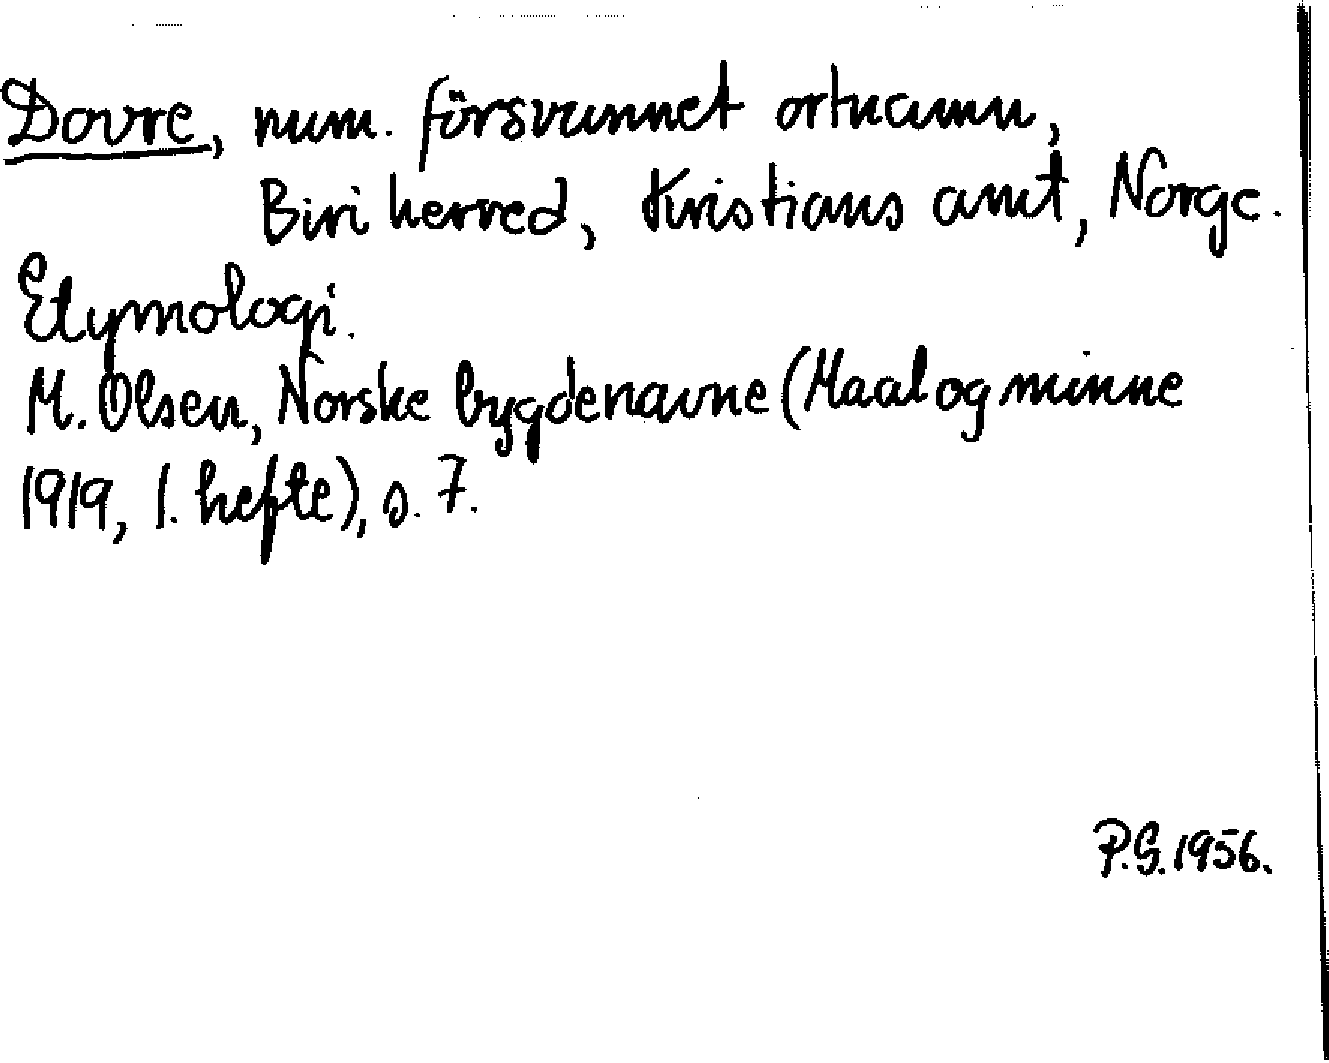 Dovre, num. försvunnet ortnamn,
Biri herred, Kristians amt, Norge.
Etymologi.
M. Olsen, Norske bygdenavne (Maal og minne
1919, 1. hefte), s. 7.
P.G. 1956.